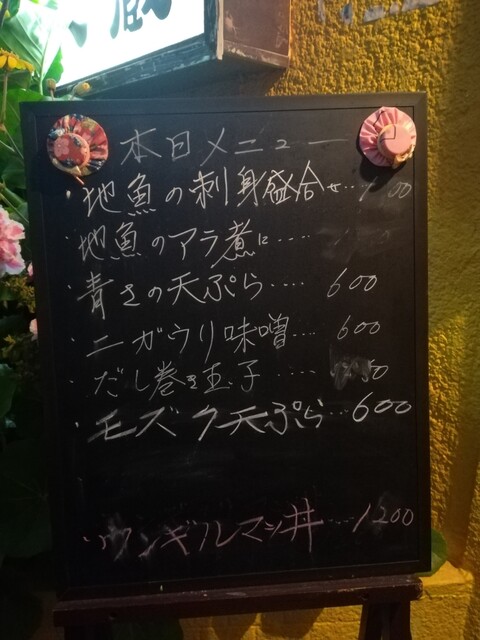 蔵
本日メニュー
・地魚の刺身盛合せ…
・地魚のアラ煮に‥‥
・青さの天ぷら‥‥ 600
・ニガウリ味噌‥‥ 600
・だし巻き玉子 ‥‥
・モズク天ぷら…600
・ウンギルマシ丼‥‥1200